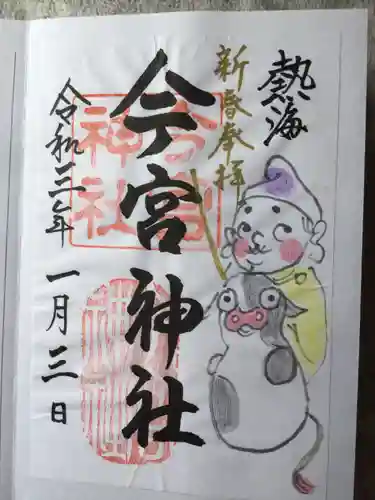 熱海
新春奉拝
今宮神社
今宮神社
令和三年
一月三日